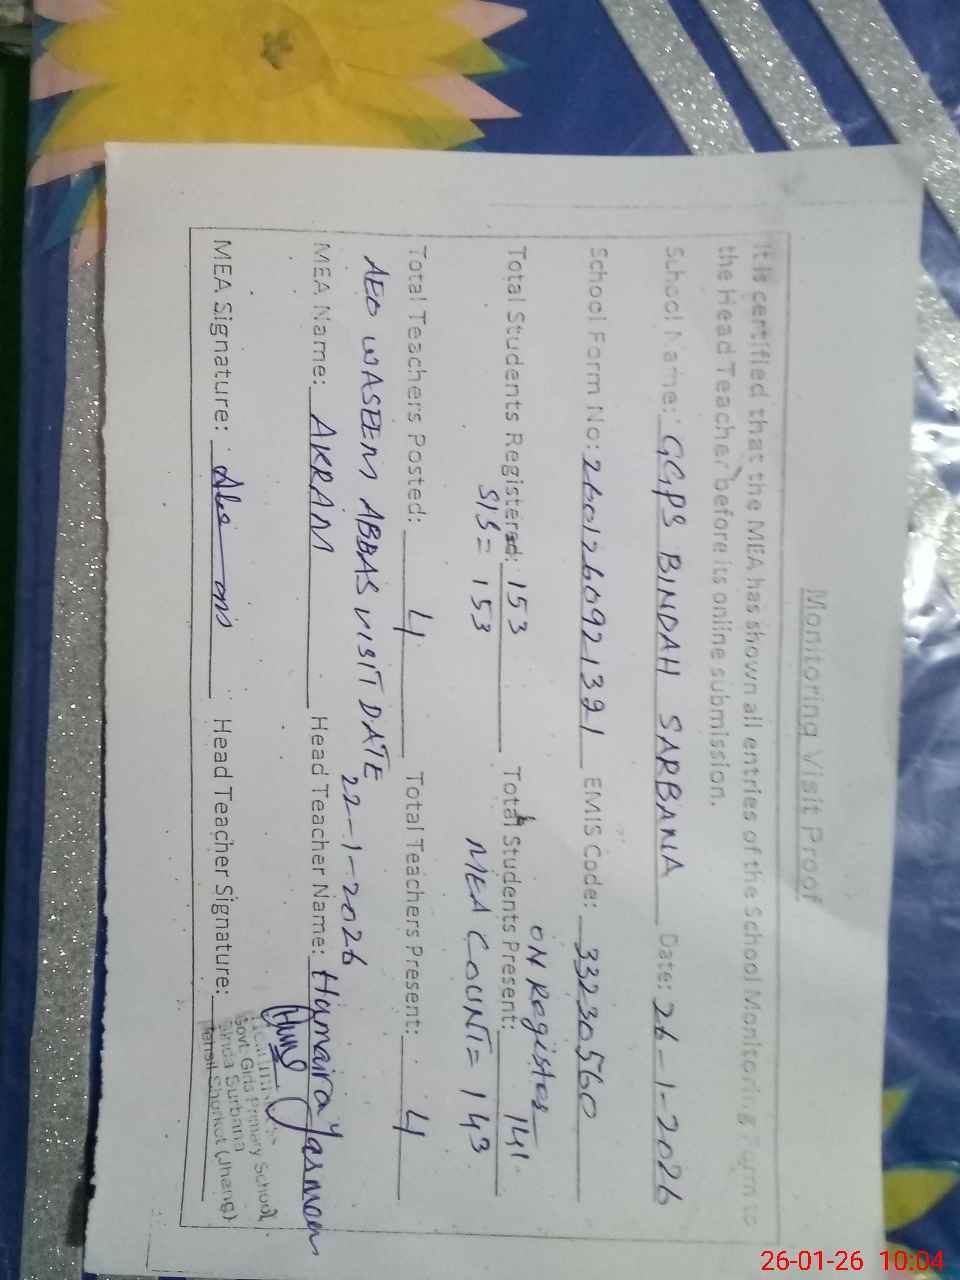 Monitoring Visit Proof
It is certified that the MEA has shown all entries of the School Monitoring Form to
the Head Teacher before its online submission.
School Name: GGPS BINDAH SARBANA Date: 26-1-2026
School Form No: 2601260921321 EMIS Code: 33230560
ON Register
Total Students Registered: 153 Total Students Present: 141
SIS = 153 MEA COUNT = 143
Total Teachers Posted: 4 Total Teachers Present: 4
AEO WASEEM ABBAS VISIT DATE 22-1-2026
MEA Name: AKRAM Head Teacher Name: Humaira Yasmeen
MEA Signature: Head Teacher Signature:
Govt. Girls Primary School
Binda Surbana
Tehsil Shorkot (Jhang)
26-01-26 10:04